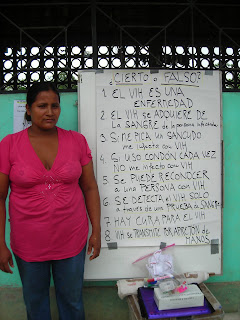 ¿CIERTO o FALSO?
1 EL VIH ES UNA
ENFERMEDAD
2 EL VIH SE ADQUIERE DE
LA SANGRE de la persona infectada
3 Si ME PICA UN SANCUDO
me infecto con VIH
4 Si USO CONDÓN CADA VEZ
NO me infecto con VIH
5 SE PUEDE RECONOCER
a una PERSONA con VIH
6 SE DETECTA el VIH SOLO
a través de una PRUEBA de SANGRE
7 HAY CURA PARA EL VIH
8 VIH se TRANSMITE POR APRETON de
MANOS